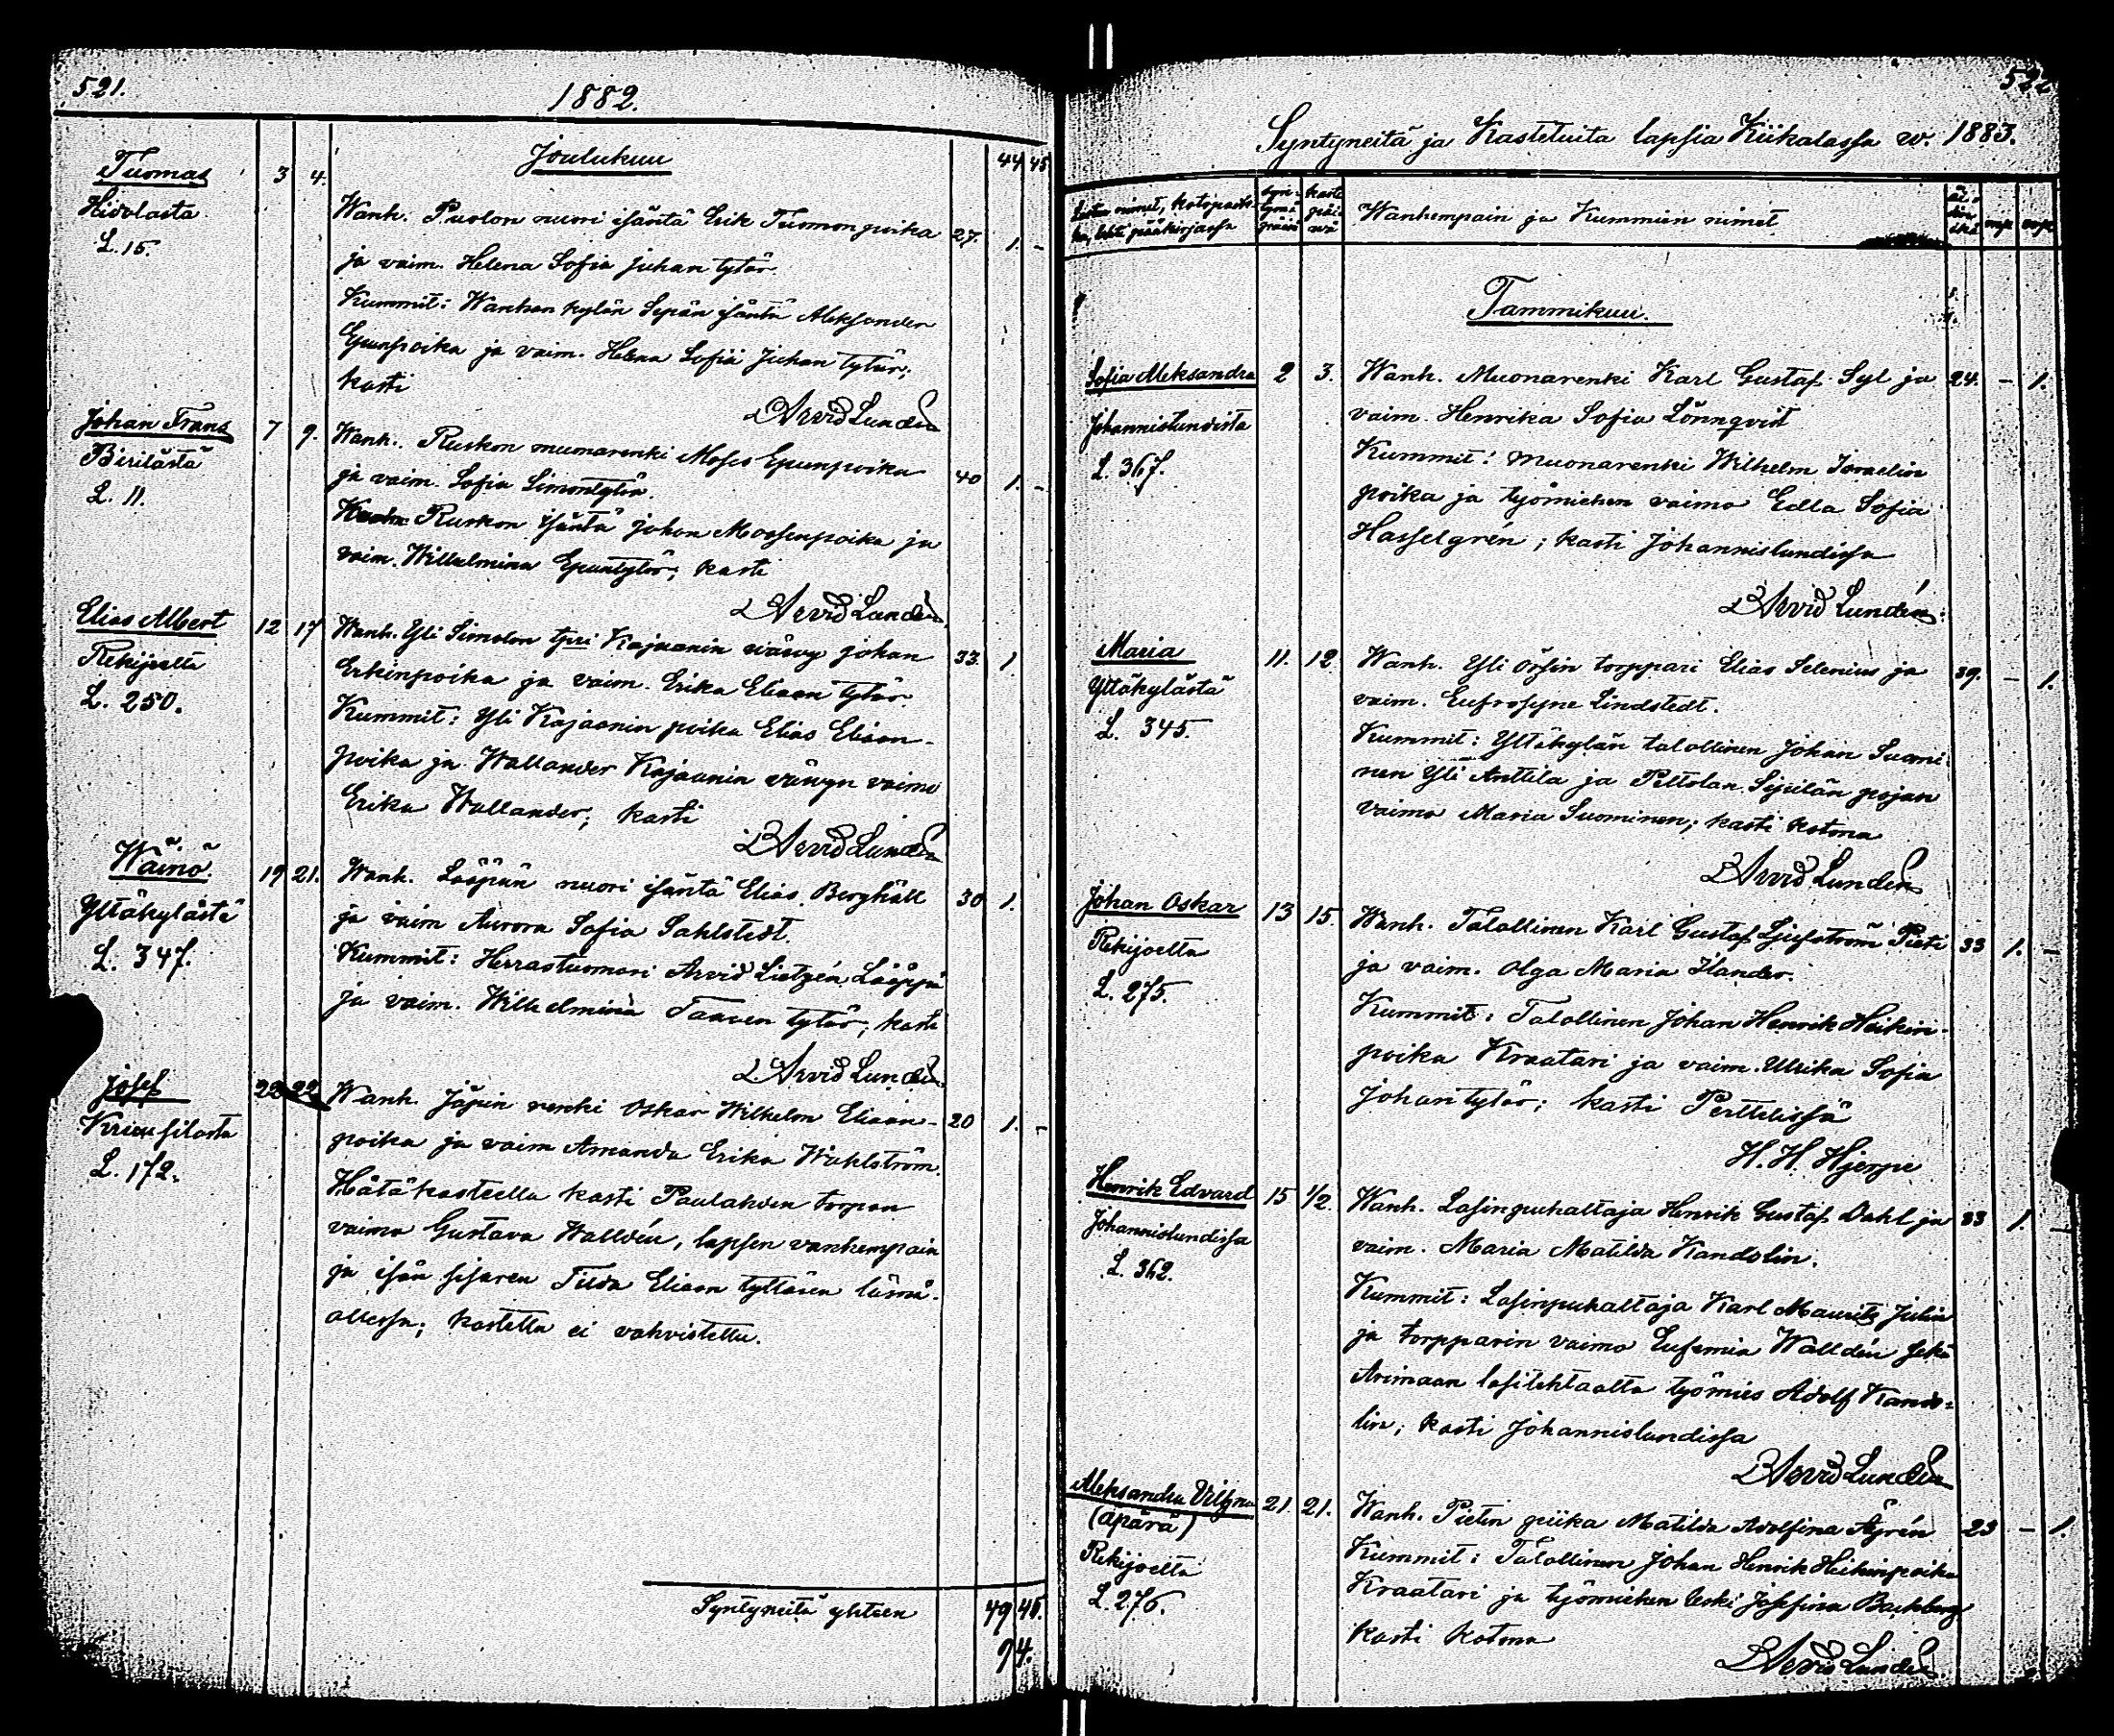 521.
1882.
Joulukuu
44 45
Tuomas 3 4.
Hidolasta
L. 15.
Wanh. Puolon nuori isäntä Erik Tuomonpoika 27. 1. -
ja vaim. Helena Sofia Juhan tytär.
Kummit: Wanhan kylän Sepän isäntä Aleksander
Epunpoika ja vaim. Helena Sofia Juhan tytär;
kasti
Arvid Lundén
Johan Frans 7 9.
Pirilästä
L. 11.
Wanh. Ruskon muonarenki Moses Epunpoika 40 1. -
ja vaim. Sofia Simontytär.
Ruskon isäntä Johan Moosenpoika ja
vaim. Wilhelmina Epuntytär; kasti
Arvid Lundén
Elias Albert 12 17
Rekijoelta
L. 250.
Wanh. Yli Simolon tpri Kajaanin vävy Johan 33. 1
Erkinpoika ja vaim. Erika Eliaan tytär.
Kummit: Yli Kajaanin poika Elias Eliaan-
poika ja Wallander Kajaanin vävyn vaimo
Erika Wallander; kasti
Arvid Lundén
Wäinö. 19 21.
Yltäkylästä
L. 347.
Wanh. Lööpän nuori isäntä Elias Berghäll 30 1.
ja vaim Aurora Sofia Sahlstedt.
Kummit: Herrastuomari Arvid Lietzén Lööppä
ja vaim. Wilhelmina Taaven tytär; kasti
Arvid Lundén
Josef 22 22
L. 172.
Wanh. Jäpin renki Oskar Wilhelm Eliaan- 20 1. -
poika ja vaim Amanda Erika Wahlström.
Hätäkasteella kasti Paulahden torpan
vaimo Gustava Walldén, lapsen vanhempain
ja isän sisaren Tilda Eliaan tyttären läsnä-
ollessa; kastetta ei vahvistettu.
Syntyneitä yhteen 49 45.
94.
522
Syntyneitä ja Kastetuita lapsia Kiikalassa w. 1883.
Lasten nimet, kotopaik-
ka, lehti pääkirjassa
syn-
tymä
päivä
kaste
päi-
vä
Wanhempain ja Kummien nimet
äi-
din
ikä
mp. vp.
Tammikuu.
Sofia Aleksandra 2 3.
Johannislundista
L. 367.
Wanh. Muonarenki Karl Gustaf Syl ja 24. - 1.
vaim. Henrika Sofia Lönnqvist
Kummit: Muonarenki Wilhelm Israelin
poika ja työmiehen vaimo Edla Sofia
Hasselgrén; kasti Johannislundissa
Arvid Lundén.
Maria 11. 12
Yltäkylästä
L. 345.
Wanh. Yli Örsin torppari Elias Selenius ja 39. - 1.
vaim. Eufrosyne Lindstedt.
Kummit: Yltäkylän talollinen Johan Suomi-
nen Yli Anttila ja Peltolan Sipilän pojan
vaimo Maria Suominen; kasti kotona
Arvid Lundén
Johan Oskar 13 15.
Rekijoelta
L. 275.
Wanh. Talollinen Karl Gustaf Ljufström Pieti 33 1. -
ja vaim. Olga Maria Ilander.
Kummit: Talollinen Johan Henrik Heikin-
poika Kraatari ja vaim. Ulrika Sofia
Johan tytär; kasti Perttelissä
H. H. Hjerpe
Henrik Edvard 15 1/2.
Johannislundissa
L. 362.
Wanh. Lasinpuhaltaja Henrik Gustaf Dahl ja 33 1. -
vaim. Maria Matilda Kandolin.
Kummit: Lasinpuhaltaja Karl Maurits Julin
ja torpparin vaimo Eufemia Walldén sekä
Avimaan lasitehtaalta työmies Adolf Kando-
lin; kasti Johannislundissa
Arvid Lundén
Aleksandra Vilhna 21. 21.
(äpärä)
Rekijoelta
L. 276.
Wanh. Pietin piika Matilda Adolfina Äyrén 23 - 1.
Kummit: Talollinen Johan Henrik Heikinpoika
Kraatari ja työmiehen leski Josefina Backberg
kasti kotona
Arvid Lundén.